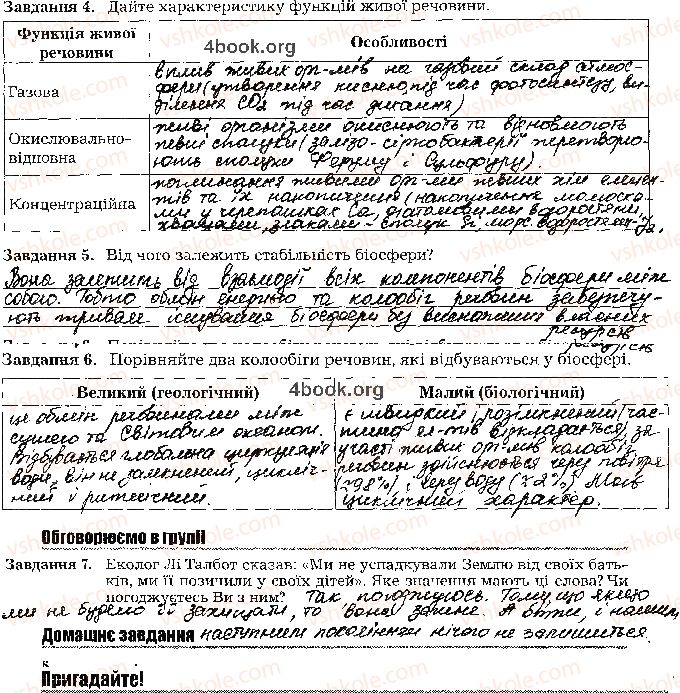 Завдання 4. Дайте характеристику функцій живої речовини.
Функція живої речовини
4book.org
Особливості
Газова
вплив живих орг-мів на газовий склад атмос-
фери (утворення кисню під час фотосинтезу, ви-
ділення CO₂ під час дихання)
Окислювально-
відповна
живі організми окиснюють та відновлюють
певні сполуки (залізо- сіркобактерії перетворю-
ють сполуки Феруму і Сульфуру).
Концентраційна
поглинання живими орг-ми певних хім елемен-
тів та їх накопичення (накопичення молюска-
ми у черепашках Ca, діатомовими водоростями,
хвощами, злаками - сполук Si, морс. водоростями - I₂.
Завдання 5. Від чого залежить стабільність біосфери?
Вона залежить від взаємодії всіх компонентів біосфери між
собою. Тобто обмін енергією та колообіг речовин забезпечу-
ють тривале існування біосфери без виснаження власних
ресурсів
ресурсів
Завдання 6. Порівняйте два колообіги речовин, які відбуваються у біосфері.
4book.org
Великий (геологічний)
Малий (біологічний)
це обмін речовинами між
сушею та Світовим океаном.
Відбувається глобальна циркуляція
води, він не замкнений, цикліч-
ний і ритмічний.
є швидкий, розімкнений (час-
тина ел-тів відкладається), за
участі живих орг-мів колообіг
речовин здійснюється через повітря
(≈98%), через воду (≈2%). Має
циклічний характер.
Обговорюємо в групі
Завдання 7. Еколог Лі Талбот сказав: «Ми не успадкували Землю від своїх бать-
ків, ми її позичили у своїх дітей». Яке значення мають ці слова? Чи
погоджуєтесь Ви з ним? Так погоджуюсь. Тому що якщо
ми не будемо її захищати, то вона загине. А отже, і нашим
Домашнє завдання наступним поколінням нічого не залишиться.
Пригадайте!